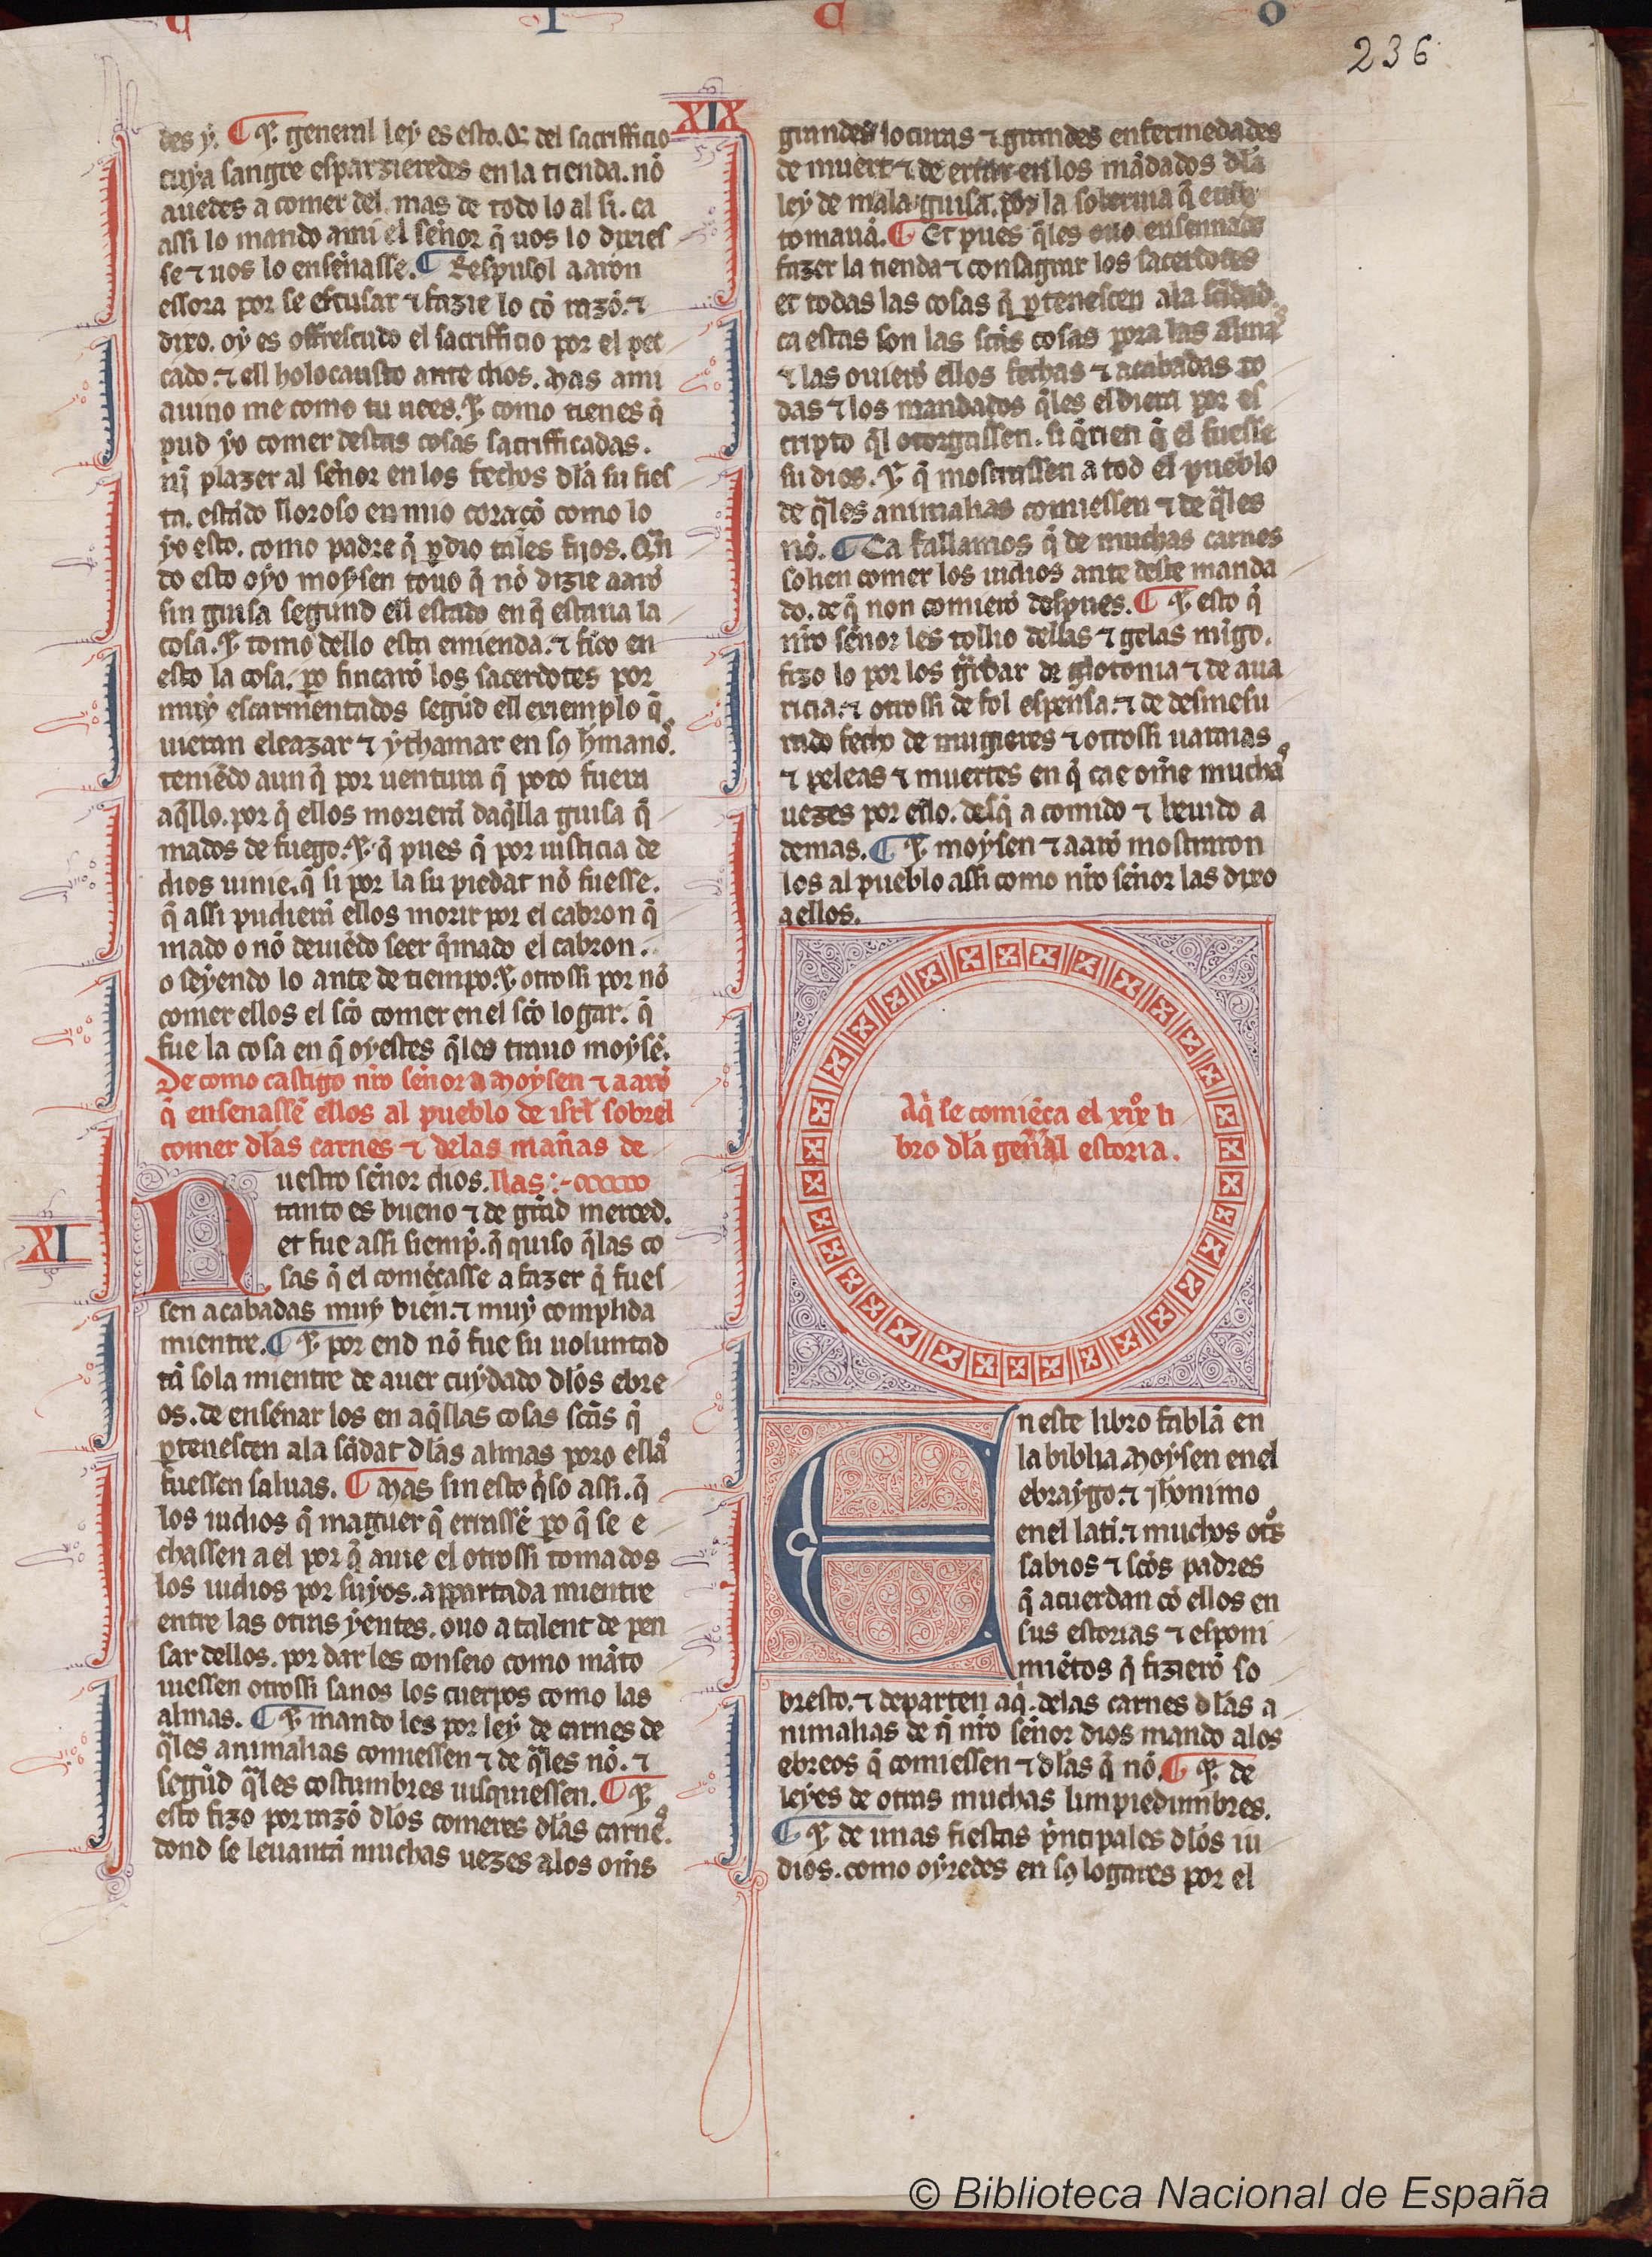 C I C O
236
XIX
des ẏ. ¶ ⁊ general ley es esto. Q̃ del sacrifficio
cuya sangre esparzieredes en la tienda. nõ
auedes a comer del. mas de todo lo al si. ca
assi lo mando ami el sẽnor q̃ uos lo dixies
se ⁊ uos lo ensẽnasse. ¶ Respusol aaron
essora por se escusar ⁊ fazie lo cõ razõ. ⁊
dixo. oẏ es offrescudo el sacrifficio por el pec
cado. ⁊ ell holocausto ante dios. Mas ami
auino me como tu uees. ⁊ como tienes q̃
pud ẏo comer destas cosas sacrifficadas.
nj̃ plazer al sẽnor en los fechos dla su fies
ta. estãdo lloroso en mio coraçõ como lo
ẏo esto. como padre q̃ ꝑdio tales fijos. Quã
do esto oẏo moẏsen touo q̃ nõ dizie aarõ
sin guisa segund ell estado en q̃ estaua la
cosa. ⁊ tomo dello esta emienda. ⁊ fico en
esto la cosa. ꝑo fincarõ los sacerdotes por
muẏ escarmentados segũd ell exiemplo q̃
uieran eleazar ⁊ ẏthamar en sꝯ hmanos.
teniẽdo aun q̃ por uentura q̃ poco fuera
aq̃llo. por q̃ ellos morierã daq̃lla guisa q̃
mados de fuego. ⁊ q̃ pues q̃ por iusticia de
dios uinie. q̃ si por la su piedat nõ fuesse.
q̃ assi pudierã ellos morir por el cabron q̃
mado o nõ deuiẽdo seer q̃mado el cabron.
o seẏendo lo ante de tiempo. ⁊ otrossi por nõ
comer ellos el scõ comer en el scõ logar. q̃
fue la cosa en q̃ oẏestes q̃les trauo moẏsẽ.
De como castigo nr̃o sẽnor a Moẏsen ⁊ aarõ
q̃ ensenassẽ ellos al pueblo de isrł sobrel
comer dlas carnes ⁊ delas mañas de
llas:-
XI
Nuestro sẽnor dios.
tanto es bueno ⁊ de grãd merced.
et fue assi siemp̃. q̃ quiso q̃las co
sas q̃ el comẽçasse a fazer q̃ fues
sen acabadas muẏ bien. ⁊ muẏ complida
mientre. ¶ ⁊ por end nõ fue su uoluntad
tã sola mientre de auer cuẏdado dlos ebre
os. de ensẽnar los en aq̃llas cosas scãs q̃
ꝑtenescen ala sãdat dlas almas poro ellas
fuessen saluas. ¶ Mas sin esto q̃so assi. q̃
los iudios q̃ maguer q̃ errassẽ ꝑo q̃ se e
chassen a el por q̃ auie el otrossi tomados
los iudios por suẏos. appartada mientre
entre las otras ẏentes. ouo a talent de pen
sar dellos. por dar les conseio como mãto
uiessen otrossi sanos los cuerpos como las
almas. ¶ ⁊ mando les por leẏ de carnes de
q̃les animalias comiessen ⁊ de q̃les nõ. ⁊
segũd q̃les costumbres uisquiessen. ¶ ⁊
esto fizo por razõ dlos comeres dlas carnes.
dond se leuantã muchas uezes alos oms
grandes locuras ⁊ grandes enfermedades
de muert ⁊ de errar en los mãdados dla
leẏ de mala guisa. por la soberuia q̃ ende
tomauã. ¶ Et pues q̃les ouo ensennado
fazer la tienda ⁊ consagrar los sacerdotes
et todas las cosas q̃ ꝑtenescen ala sãdad.
ca estas son las scãs cosas pora las almas
⁊ las ouierõ ellos fechas ⁊ acabadas to
das ⁊ los mandados q̃les el diera por es
cripto q̃l otorgassen. si q̃rien q̃ el fuesse
su dios. ⁊ q̃ mostrassen a tod el pueblo
de q̃les animalias comiessen ⁊ de q̃les
nõ. ¶ Ca fallamos q̃ de muchas carnes
solien comer los iudios ante deste manda
do. de q̃ non comierõ despues. ¶ ⁊ esto q̃
nr̃o sẽnor les tollio dellas ⁊ gelas mĩgo.
fizo lo por los g̃rdar de glotonia ⁊ de aua
ricia. ⁊ otrossi de fol espẽnsa. ⁊ de desmesu
rado fecho de mugieres ⁊ otrossi uaraias
⁊ peleas ⁊ muertes en q̃ cae om̃e muchas
uezes por ello. desq̃ a comido ⁊ beuido a
demas. ¶ ⁊ moẏsen ⁊ aarõ mostraron
los al pueblo assi como nr̃o sẽnor las dixo
a ellos.
Aq̃ se comiẽça el xixº li
bro dla general estoria.
En este libro fablã en
la biblia Moẏsen en el
ebraẏgo. ⁊ jheronimo
en el latĩ. ⁊ muchos otros
sabios ⁊ scõs padres
q̃ acuerdan cõ ellos en
sus estorias ⁊ esponi
miẽtos q̃ fizierõ so
bresto. ⁊ departen aq̃. delas carnes dlas a
nimalias de q̃ nr̃o sẽnor dios mando alos
ebreos q̃ comiessen ⁊ dlas q̃ nõ. ¶ ⁊ de
leẏes de otras muchas limpiedumbres.
¶ ⁊ de unas fiestas p̃ncipales dlos iu
dios. como oẏredes en sꝯ logares por el
© Biblioteca Nacional de España